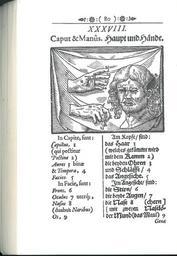 ( 80 )
XXXVIII.
Caput & Manûs. Haupt und Hände.
In Capite, sunt:
Capillus, 1
(qui pectitur
Pectine 2
Aures 3 binæ
& Tempora, 4
Facies. 5
In Facie, sunt:
Frons, 6
Oculus 7 uterq;,
Nasus 8
(duabus Naribus)
Os, 9
Am Kopfe/ sind:
das Haar 1
(welches gekämmt wird
mit dem Kamm 2)
die beyden Ohren 3
und Schläffe/ 4
das Angesicht. 5
Im Angesichte/ sind:
die Stirn/ 6
die beyde Augen/ 7
die Nase 8 [chern]
( mit zweyen
der Mund (das Maul) 9